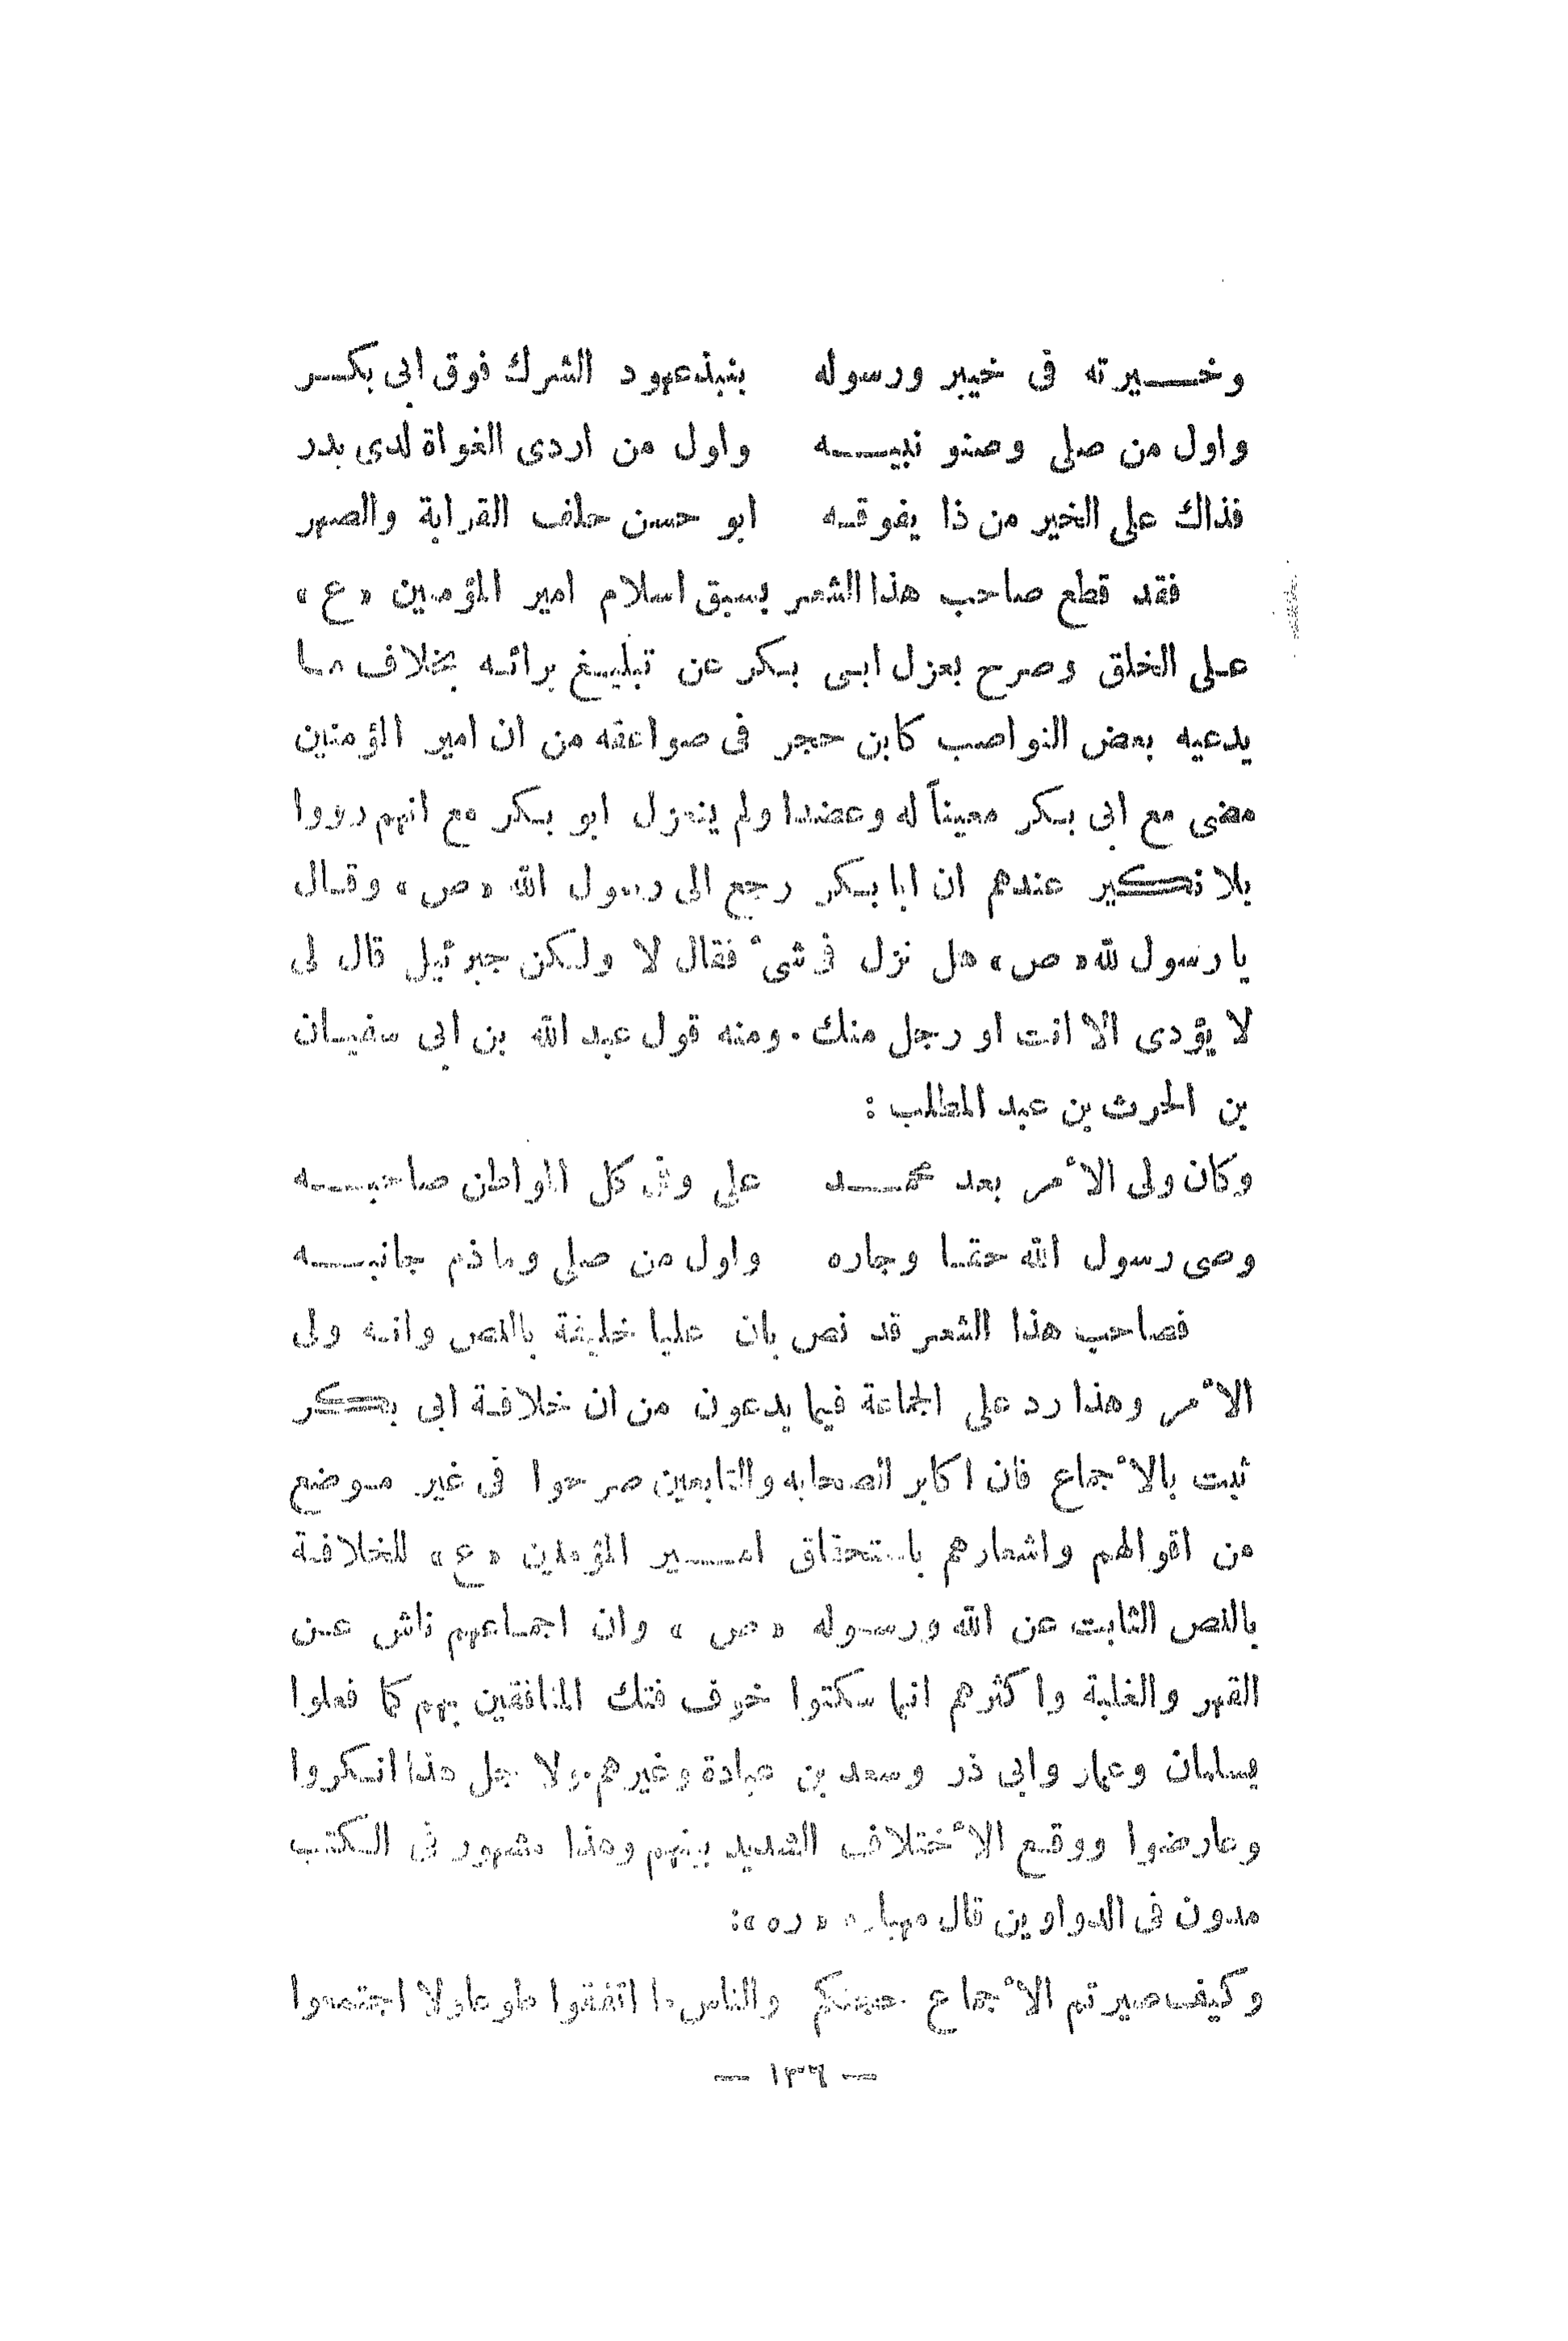 وخـــيرته فى خيبر ورسوله بنبذعهود الشرك فوق ابى بكــر
واول من صلى وصنو نبيـــه واول من اردى الغواة لدى بدر
فذاك على الخير من ذا يفوقـه ابو حسن حلف القرابة والصهر
فقد قطع صاحب هذا الشعر بسبق اسلام امير المؤمنين «ع»
عـلى الخلق وصرح بعزل ابـى بـكر عن تبليـغ برائـه بخلاف مـا
يدعيه بعض النواصب كابن حجر فى صواعقه من ان امير المؤمنين
مضى مع ابى بـكر معيناً له وعضدا ولم ينعزل ابو بـكر مع انهم رووا
بلا نـكير عندهم ان ابا بـكر رجع الى رسول الله «ص» وقـال
يا رسول لله «ص» هل نزل فى شىء فقال لا ولـكن جبرئيل قال لى
لا يؤدى الا انت او رجل منك . ومنه قول عبد الله بن ابى سفيـان
بن الحرث بن عبد المطلب :
وكان ولى الأمر بعد محمـــد على وفى كل المواطن صاحبـــه
وصى رسول الله حقـا وجاره واول من صلى وما ذم جانبـــه
فصاحب هذا الشعر قد نص بان عليا خليفة بالنص وانـه ولى
الأمر وهذا رد على الجماعة فيما يدعون من ان خلافـة ابى بـكر
ثبت بالأجماع فان اكابر الصحابه والتابعين صرحوا فى غير مـوضع
من اقوالهم واشعارهم باستحقاق امـــير المؤمنين «ع» للخلافـة
بالنص الثابت عن الله ورسـوله «ص» وان اجمـاعهم ناش عـن
القهر والغلبة واكثرهم انما سكتوا خوف فتك المنافقين بهم كما فعلوا
بسلمان وعمار وابى ذر وسعد بن عبادة وغيرهم. ولا جل هذا انـكروا
وعارضوا ووقـع الأختلاف الشديد بينهم وهذا مشهور فى الـكتب
مدون فى الدواوين قال مهيار «ره»:
وكيف صيرتم الأجماع حجتكم والناس ما اتفقوا طوعا ولا اجتمعوا
— ١٣٦ —